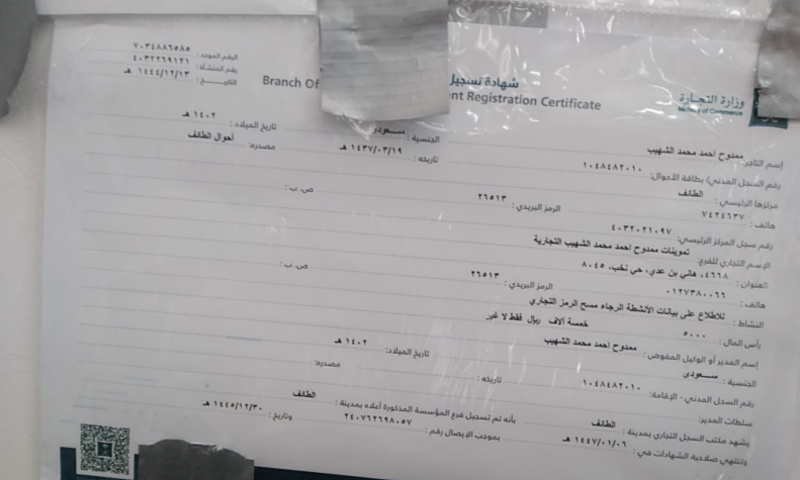 وزارة التجارة
Ministry of Commerce
شهادة تسجيل
Branch Of
nt Registration Certificate
الرقم الموحد : ٧٠٣٤٨٨٦٥٨٥
رقم المنشأة : ٤٠٣٢٢٦٩١٢١
التاريخ : ١٤٤٤/١٢/١٣ هـ
إسم التاجر: ممدوح احمد محمد الشهيب الجنسية : سعودي تاريخ الميلاد : ١٤٠٢ هـ
رقم السجل المدني/ بطاقة الأحوال: ١٠٤٨٤٨٢٠١٠ تاريخه : ١٤٣٧/٠٣/١٩ هـ مصدره: أحوال الطائف
مركزها الرئيسي : الطائف
هاتف : ٧٤٢٤٦٣٧ الرمز البريدي : ٢٦٥١٣ ص. ب :
رقم سجل المركز الرئيسي: ٤٠٣٢٠٢١٠٩٧
الإسم التجاري للفرع: تموينات ممدوح احمد محمد الشهيب التجارية
العنوان : ٤٦٦٨، هاني بن عدي، حي نخب، ٨٠٤٥
هاتف : ٠١٢٧٣٨٠٠٦٦ الرمز البريدي : ٢٦٥١٣ ص. ب :
النشاط : للاطلاع على بيانات الأنشطة الرجاء مسح الرمز التجاري
رأس المال : ٥٠٠٠ خمسة آلاف ريال فقط لا غير
إسم المدير أو الوكيل المفوض : ممدوح احمد محمد الشهيب تاريخ الميلاد: ١٤٠٢ هـ
الجنسية : سعودى
رقم السجل المدني - الإقامة: ١٠٤٨٤٨٢٠١٠ تاريخه : مصدره:
سلطات المدير:
يشهد مكتب السجل التجاري بمدينة : الطائف بأنه تم تسجيل فرع المؤسسة المذكورة أعلاه بمدينة : الطائف
وتنتهي صلاحية الشهادات في : ١٤٤٧/٠١/٠٦ هـ بموجب الإيصال رقم : ٢٤٠٧٦٢٦٩٨٠٥٧ وتاريخ : ١٤٤٥/١٢/٣٠ هـ